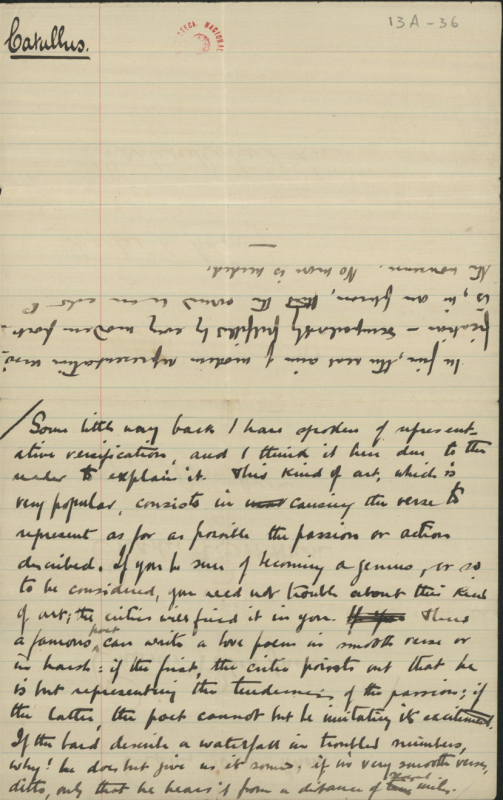 13A-36
Catullus.
BIBLIOTECA NACIONAL
In fine, the real aim of modern representative versi-
fication — exemplarily fulfilled by every modern poet —
is, in our person, the sound is an echo to
the nonsense. No more is needed.
Some little way back I have spoken of represent-
ative versification, and I think it here due to the
reader to explain it. This kind of art, which is
very popular, consists in causing the verse to
represent as far as possible the passion or action
described. If you be sure of becoming a genius, or so
to be considered, you need not trouble about this kind
of art; the critics will find it in you. Thus
a famous poet can write a love poem in smooth verse or
in harsh: if the first, the critic points out that he
is but representing the tenderness of the passion; if
the latter, the poet cannot but be imitating its excitement.
If the bard describe a waterfall in troubled numbers,
why! he does but give us its sound; if in very smooth verse,
ditto, only that he hears it from a distance of several miles.